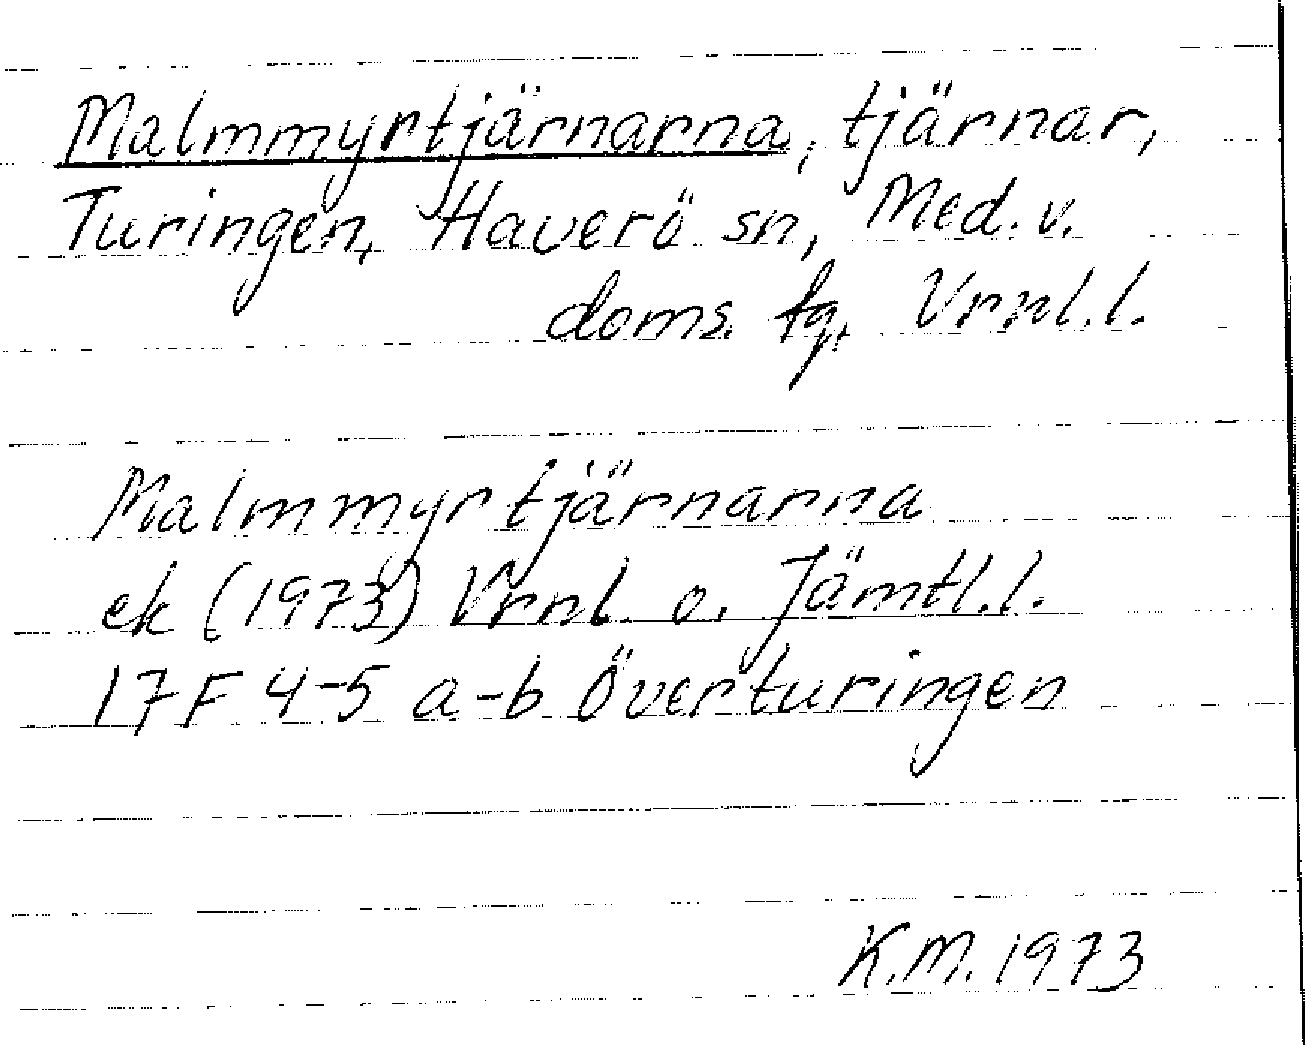 Malmmyrtjärnarna, tjärnar,
Turingen, Haverö sn, Med. v.
doms. fq, Vrnl.l.
Malmmyrtjärnarna
ek (1973) Vrnl. o. Jämtl.l.
17F 4-5 a-b Överturingen
K.M. 1973